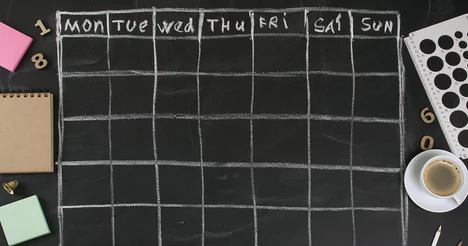 MON TUE WED THU FRI SAT SUN
1
8
6
0